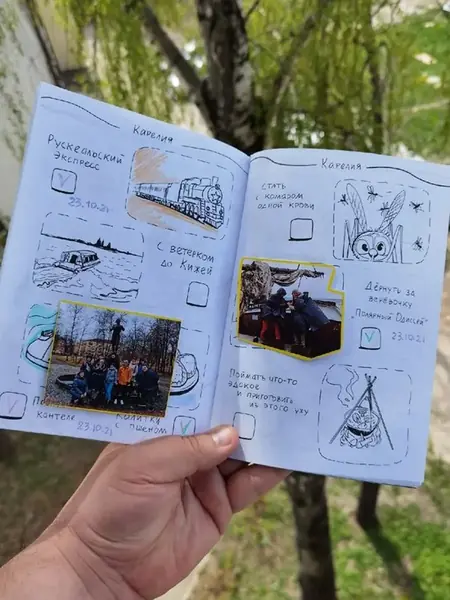 КАРЕЛИЯ
РУСКЕАЛЬСКИЙ
ЭКСПРЕСС
23.10.21
С ВЕТЕРКОМ
ДО КИЖЕЙ
КАНТЕЛЕ
КАЛИТКУ
С ПШЕНОМ
23.10.21
КАРЕЛИЯ
СТАТЬ
С КОМАРОМ
ОДНОЙ КРОВИ
ДЁРНУТЬ ЗА
ВЕРЁВОЧКУ
"ПОЛЯРНЫЙ ОДИССЕЙ"
23.10.21
ПОЙМАТЬ ЧТО-ТО
ЭДАКОЕ
И ПРИГОТОВИТЬ
ИЗ ЭТОГО УХУ